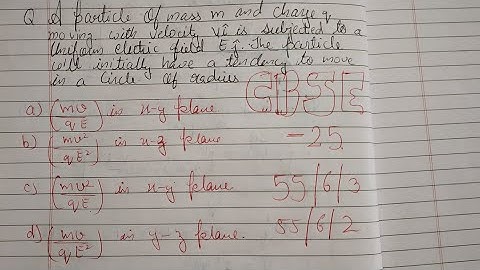 Q A particle of mass m and charge q
moving with velocity vî is subjected to a
Uniform electric field E ĵ. The particle
will initially have a tendency to move
in a circle of radius
CBSE
a) (mv/qE) in x-y plane
- 25
b) (mv/qE²) in x-z plane
c) (mv²/qE) in x-y plane
55/6/3
d) (mv/qE²) in y-z plane.
55/6/2